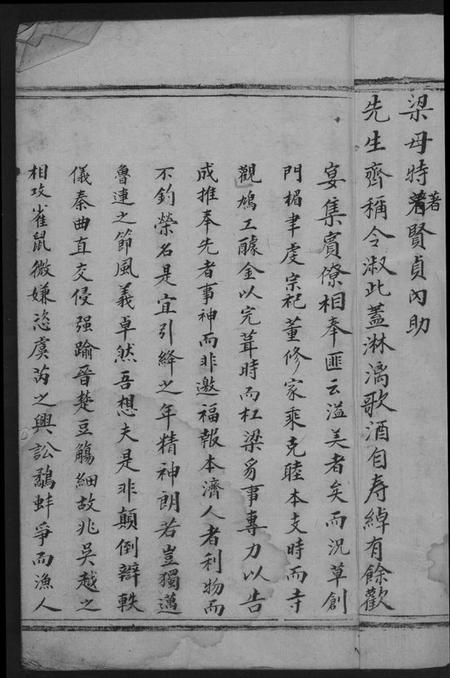 梁母特著賢貞內助
先生齊稱令淑此蓋淋漓歌酒自寿綽有餘歡
宴集賓僚相奉匪云溢美者矣而況草創
門楣聿虔宗祀董修家乘克睦本支時而寺
觀鳩工醵金以完葺時而杠梁易事專力以告
成推奉先者事神而非邀福報本濟人者利物而
不釣榮名是宜引絳之年精神朗若豈獨邁
魯連之節風義卓然吾想夫是非顛倒辯軼
儀秦曲直交侵强踰晉楚豆觴細故兆吳越之
相攻雀鼠微嫌恣虞芮之興訟鷸蚌爭而漁人